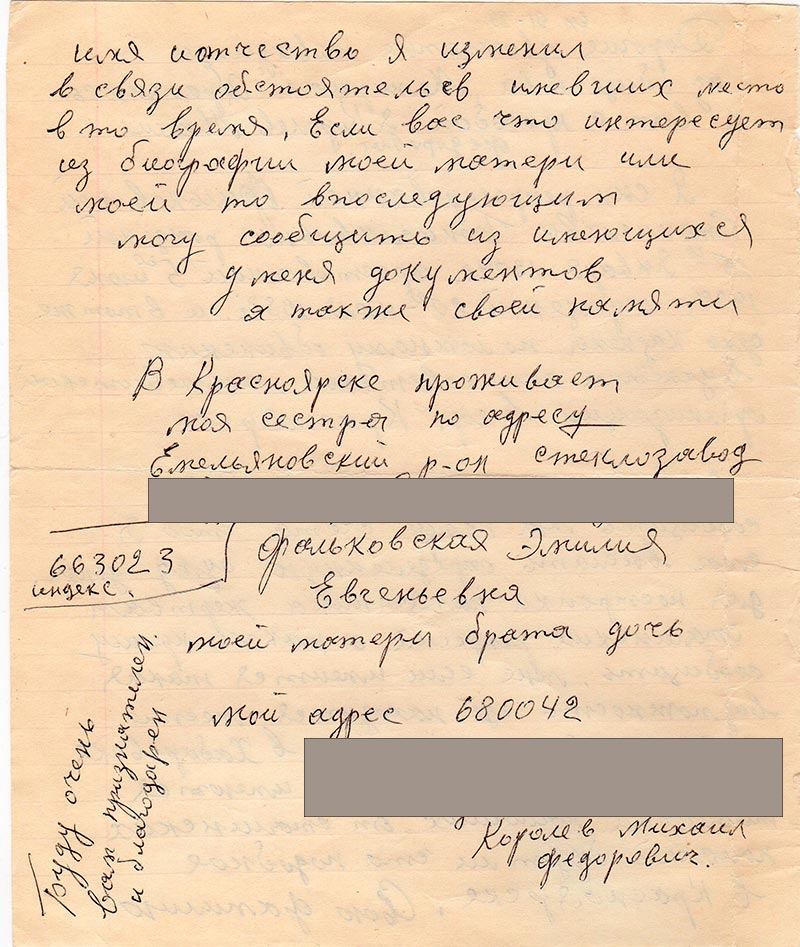 имя и отчество я изменил
в связи обстоятельсв имевших место
в то время, Если вас что интересует
из биографии моей матери или
моей то впоследующим
могу сообщить из имеющихся
у меня документов
а также своей памяти
В Красноярске проживает
моя сестра по адресу
Емельяновский р-он стеклозавод
663023
индекс.
Фальковская Эмилия
Евгеньевна
моей матери брата дочь
мой адрес 680042
Королев Михаил
Федорович.
Буду очень
вам признателен
и благодарен